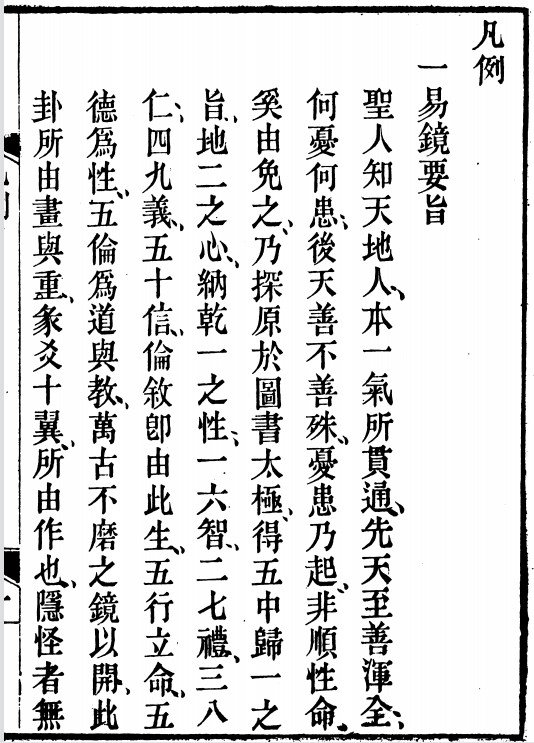 凡例
一易鏡要旨
聖人知天地人、本一氣所貫通、先天至善渾全、
何憂何患、後天善不善殊、憂患乃起、非順性命、
奚由免之、乃探原於圖書太極、得五中歸一之
旨、地二之心、納乾一之性、一六智、二七禮、三八
仁、四九義、五十信、倫敘卽由此生、五行立命、五
德爲性、五倫爲道與教、萬古不磨之鏡以開、此
卦所由畫與重、彖爻十翼、所由作也、隱怪者無